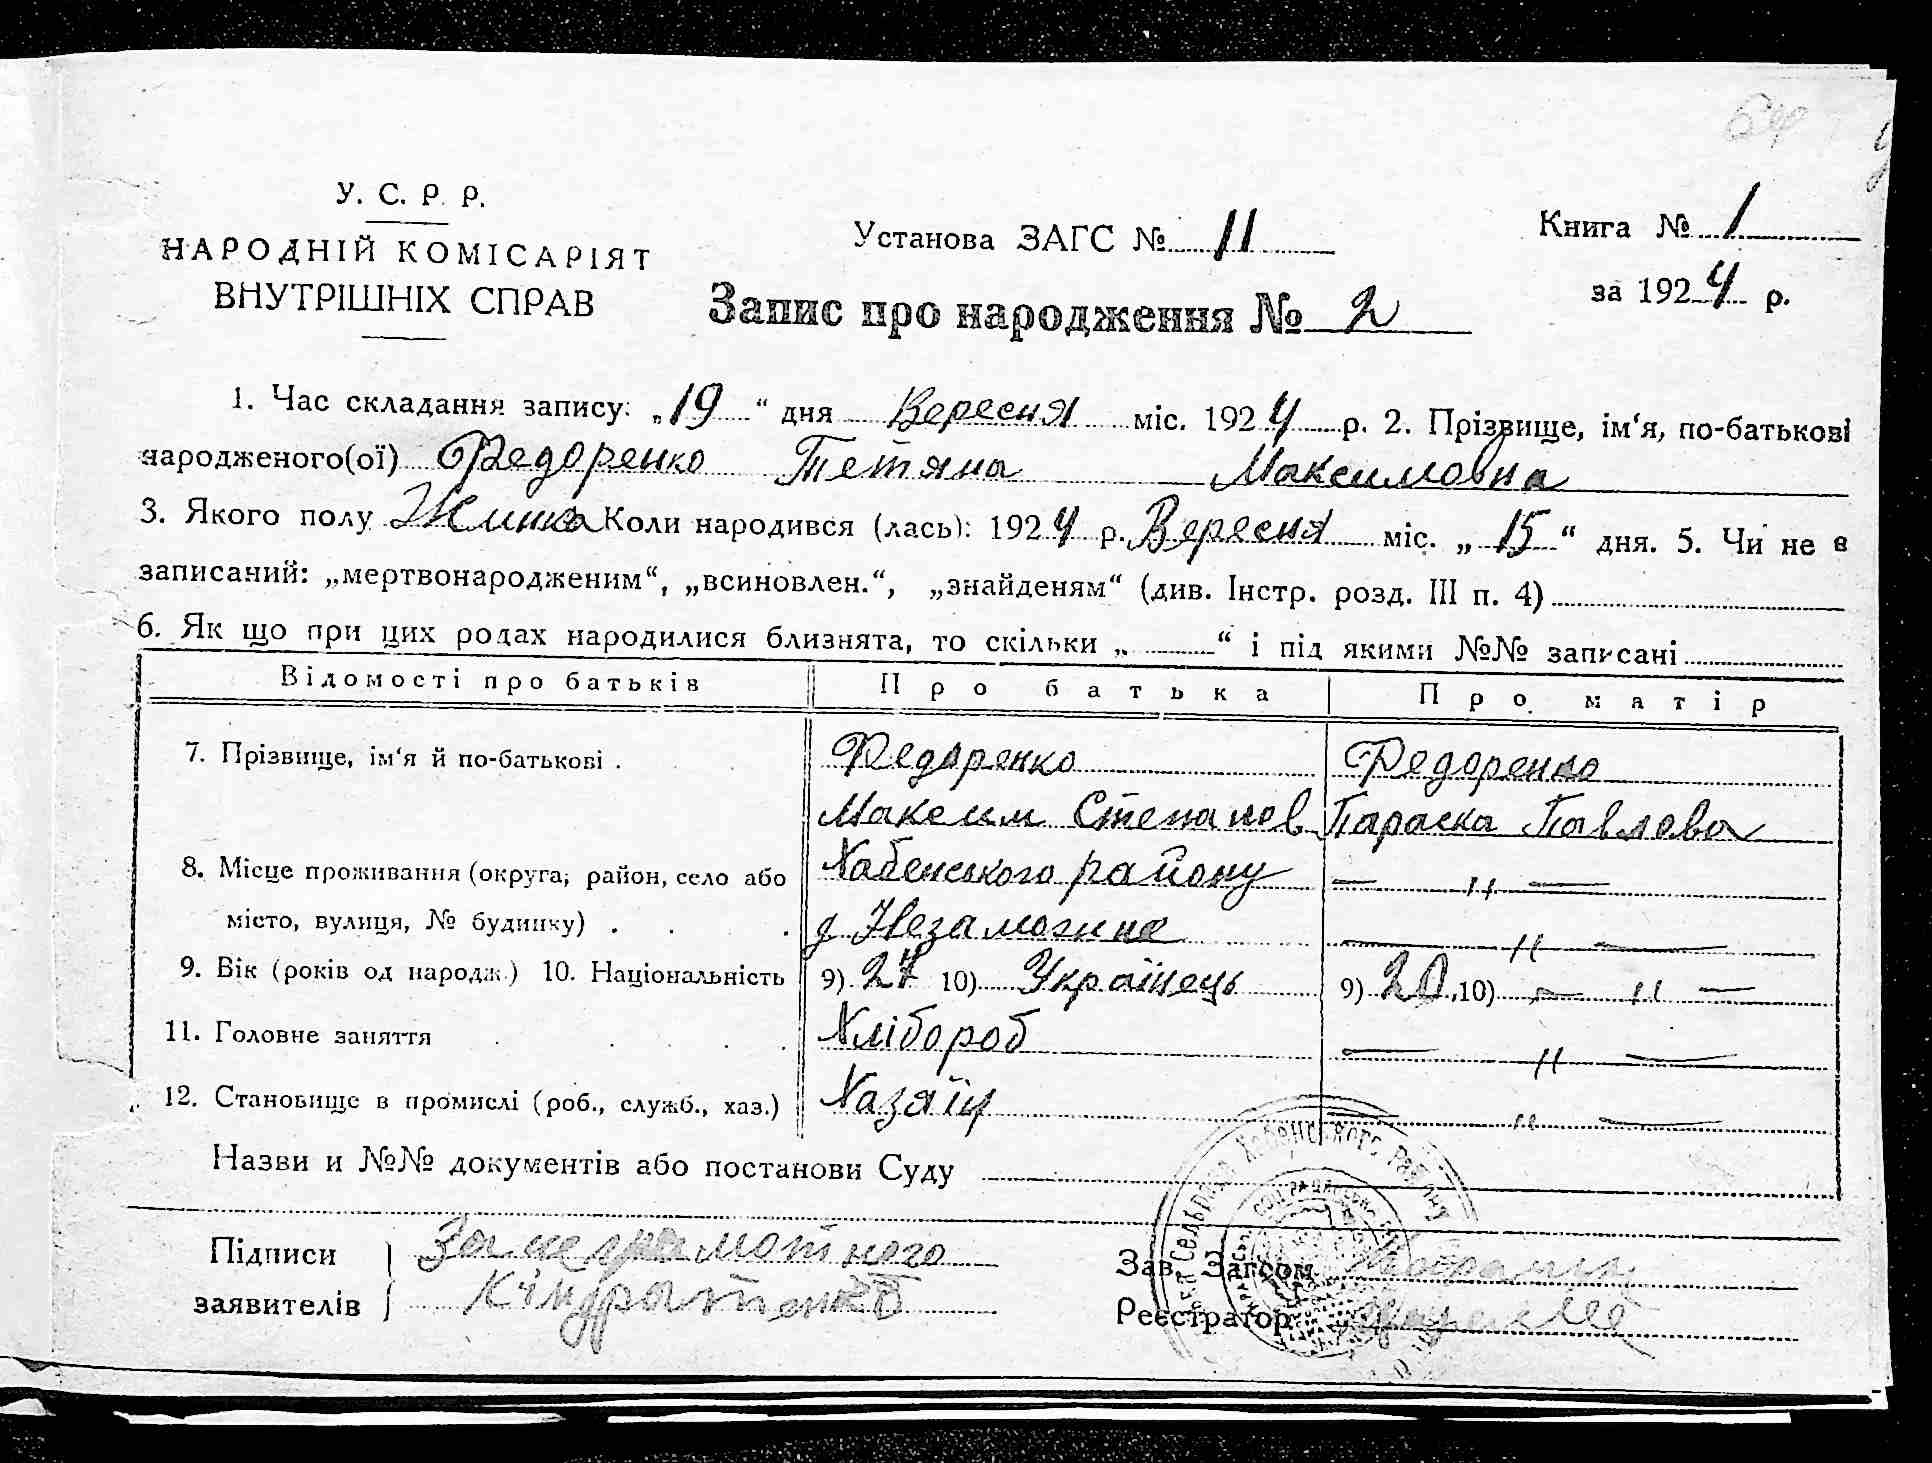 64
У. С. Р. Р.
НАРОДНІЙ КОМІСАРІЯТ
ВНУТРІШНІХ СПРАВ
Установа ЗАГС № 11
Книга № 1
за 1924 р.
Запис про народження № 2
1. Час складання запису: „19“ дня Вересня міс. 1924 р. 2. Прізвище, ім‘я, по-батькові
народженого(ої) Федоренко Тетяна Максимовна
3. Якого полу Жинка Коли народився (лась): 1924 р. Вересня міс. „15“ дня. 5. Чи не є
записаний: „мертвонародженим“, „всиновлен.“, „знайденям“ (див. Інстр. розд. III п. 4)
6. Як що при цих родах народилися близнята, то скільки „ “ і під якими №№ записані
Відомості про батьків Про батька Про матір
7. Прізвище, ім‘я й по-батькові . Федоренко Федоренко
Максим Степанов Параска Павлова
8. Місце проживання (округа, район, село або Хабенського району — „ —
місто, вулиця, № будинку) . . . д Незамогине — „ —
9. Вік (років од народж.) 10. Національність 9) 27 10) Українець 9) 20 10) — „ —
11. Головне заняття . . . . Хлібороб — „ —
12. Становище в промислі (роб., служб., хаз.) Хазяїн — „ —
Назви и №№ документів або постанови Суду
Підписи
заявителів
За неграмотного
Кіндратенко
Зав. Загсом
Реєстратор
Сельрада Хабенського району